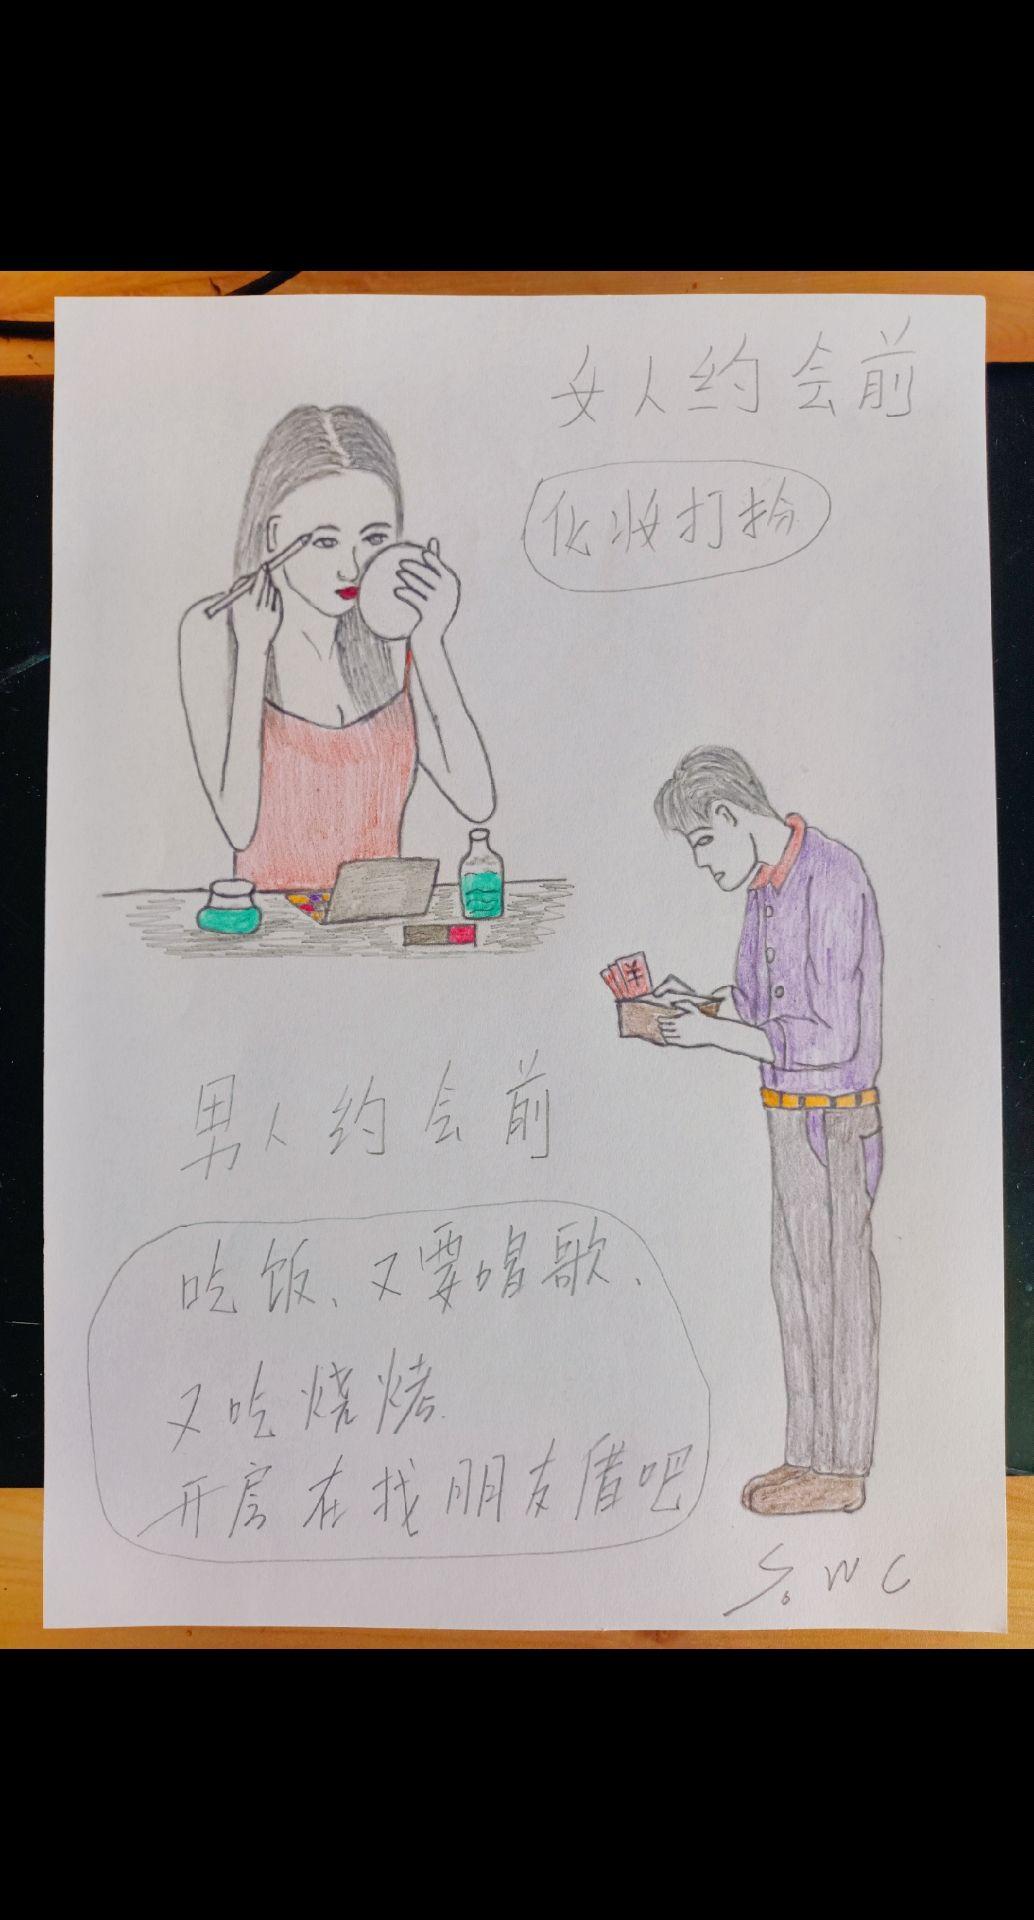 女人约会前
化妆打扮
¥
男人约会前
吃饭、又要唱歌、
又吃烧烤.
开房在找朋友借吧
S.WC